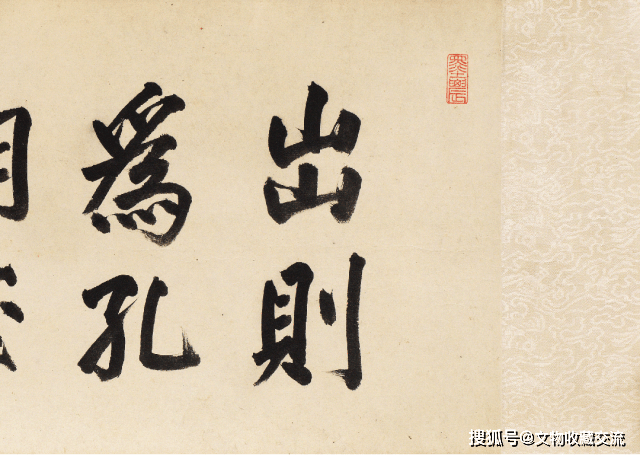 出則
爲孔
搜狐号@文物收藏交流